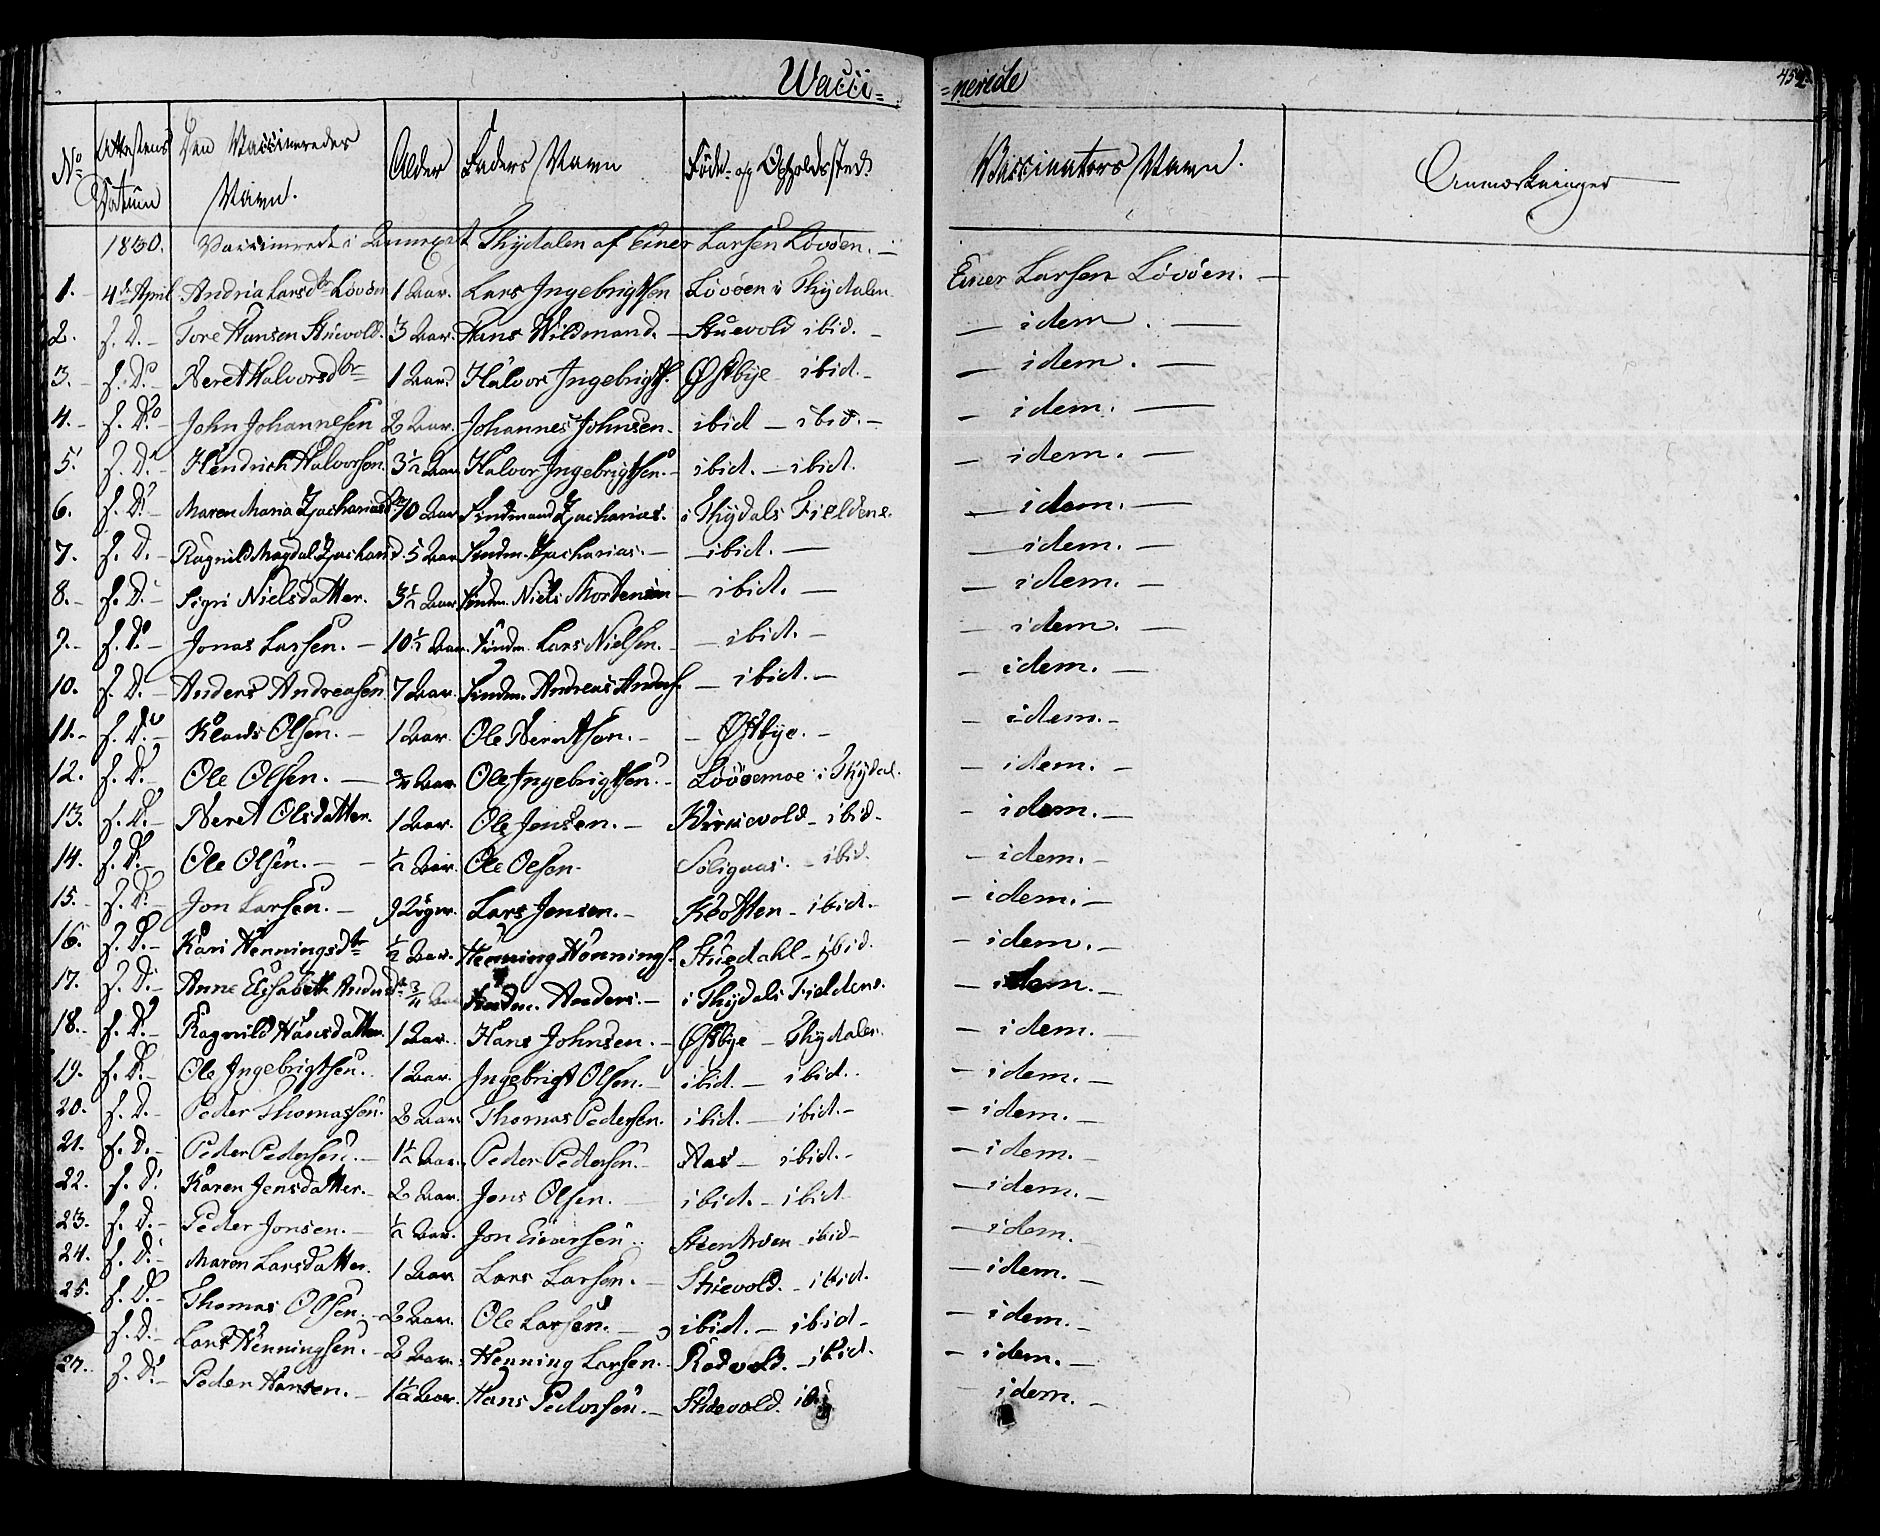 Wacci= =nerede 452.
No Attestens Datum Den Vaccineredes Navn. Alder Faders Navn Føde- og Opholdssted Vaccinators Navn. Anmærkninger
1830. Vaccinerede i Annexet Thydalen af Einer Larsen Løvøen.
1. 4de April Andria Larsdtr Løvøen 1 Aar. Lars Ingebrigtsen Løvøen i Thydalen Einer Larsen Løvøen. —
2. s. D. – Tore Hansen Stuevold. 3 Aar. Hans Wildmand. – Stuevold ibid. – — idem. —
3. – s. Do Beret Halvorsdtr 1 Aar. Halvor Ingebrigts. Østbye ibid. – — idem. —
4. – s. Do – John Johannesen 2 Aar. Johannes Johnsen. ibid – ibid. – – idem. —
5. s. D. Hendrich Halvorsen. 3½ Aar Halvor Ingebrigtsen. – ibid. – ibid. – idem. —
6. s. D. – Maren Maria Zachariasdtr 10 Aar Findmand Zacharias. i Thydals Fieldene. — idem. —
7. s. D. – Ragnild Magdal. Zachariasd. 5 Aar Findm. Zacharias. – – ibid. — — idem. —
8. – s. D. – Sigri Nielsdatter. 3½ Aar Findm. Niels Mortensen – ibid. — — idem. —
9. – s. Do – Jonas Larsen. – 10½ Aar. Findm. Lars Nielsen. – ibid. – – idem. —
10. s. D. – Anders Andreasen 7 Aar. Findm. Andreas Anders. – ibid. – – idem. —
11. – s. D. – Klaus Olsen. – 1 Aar. Ole Berntsen. – – Østbye. – – idem. –
12. s. D. – Ole Olsen. — ¾ Aar. Ole Ingebrigtsen. – Løvøemoe i Thydal. – idem. –
13. s. D. – Beret Olsdatter. 1 Aar. Ole Jensen. – Kirkevold – ibid. – idem. —
14. s. D. – Ole Olsen. – – ½ Aar. Ole Olsen. – ibid. – idem. –
15. – s. D. – Jon Larsen. – 9 Uger. Lars Jensen. – Kløften – ibid. – – idem. –
16. s. D. – Kari Henningsdtr ½ Aar. Henning Hennings. Stuedahl – ibid. – idem. –
17. s. D. – Anne Elisabeth Andersdtr ¾ Aar Findm. Anders. – i Thydals Fieldene. – idem. –
18. – s. D. Ragnild Hansdatter. 1 Aar. Hans Johnsen. – Østbye – Thydalen. – idem. –
19. s. D. – Ole Ingebrigtsen. 1 Aar. Ingebrigt Olsen. – ibid. – ibid. – idem. –
20. s. D. – Peder Thomassen. 2 Aar. Thomas Pedersen. ibid. – ibid. – – idem. –
21. s. D. – Peder Pedersen. – 1½ Aar. Peder Pedersen. – Aas – ibid. – – idem. –
22. s. D. Karen Jensdatter. – 2 Aar. Jens Olsen. ibid. – ibid. — idem. –
23. s. D. – Peder Jonsen. – ½ Aar. Jon Einersen. ibid – — idem. –
24. s. D. – Maren Larsdatter. 1 Aar Lars Larsen. – Stuevold. – ibid. — idem. –
25. s. D. – Thomas Olsen. – 2 Aar. Ole Larsen. – ibid. – ibid – – idem. –
s. D. – Lars Henningsen. – 2 Aar. Henning Larsen. – Rødvold. – ibid. – idem. –
27. s. D. – Peder Hansen. – 1½ Aar. Hans Pedersen. – Stuevold. ibid – idem. –